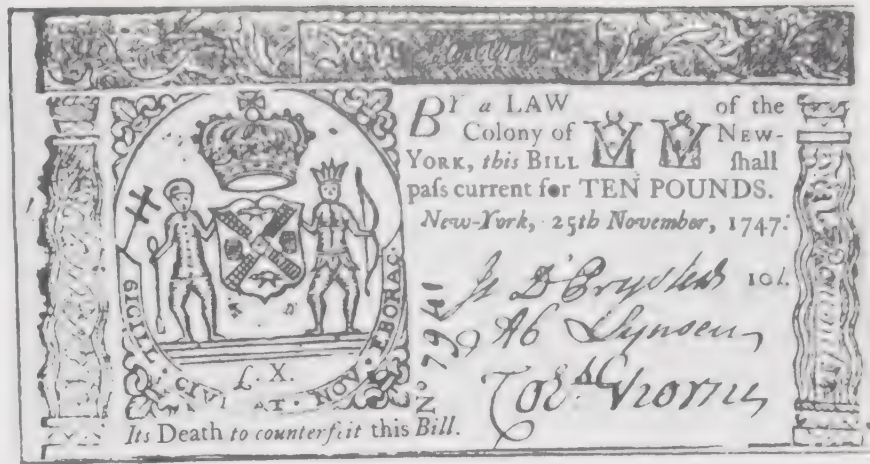 BY a LAW of the
Colony of NEW-
YORK, this BILL ſhall
paſs current for TEN POUNDS.
New-York, 25th November, 1747.
10l.
Ab Lynsen
Nº 7941
SIGILL · CIVITAT · NOV · EBORAC ·
£. X.
Its Death to counterfeit this Bill.